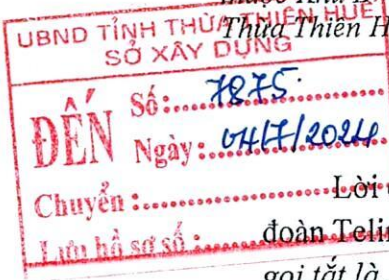 Thừa Thiên H
UBND TỈNH THỪA THIÊN HUẾ
SỞ XÂY DỰNG
ĐẾN
Số: 7875
Ngày: 04/7/2024
Chuyển:
Lời
Lưu hồ sơ số:
đoàn Telin
gọi tắt là